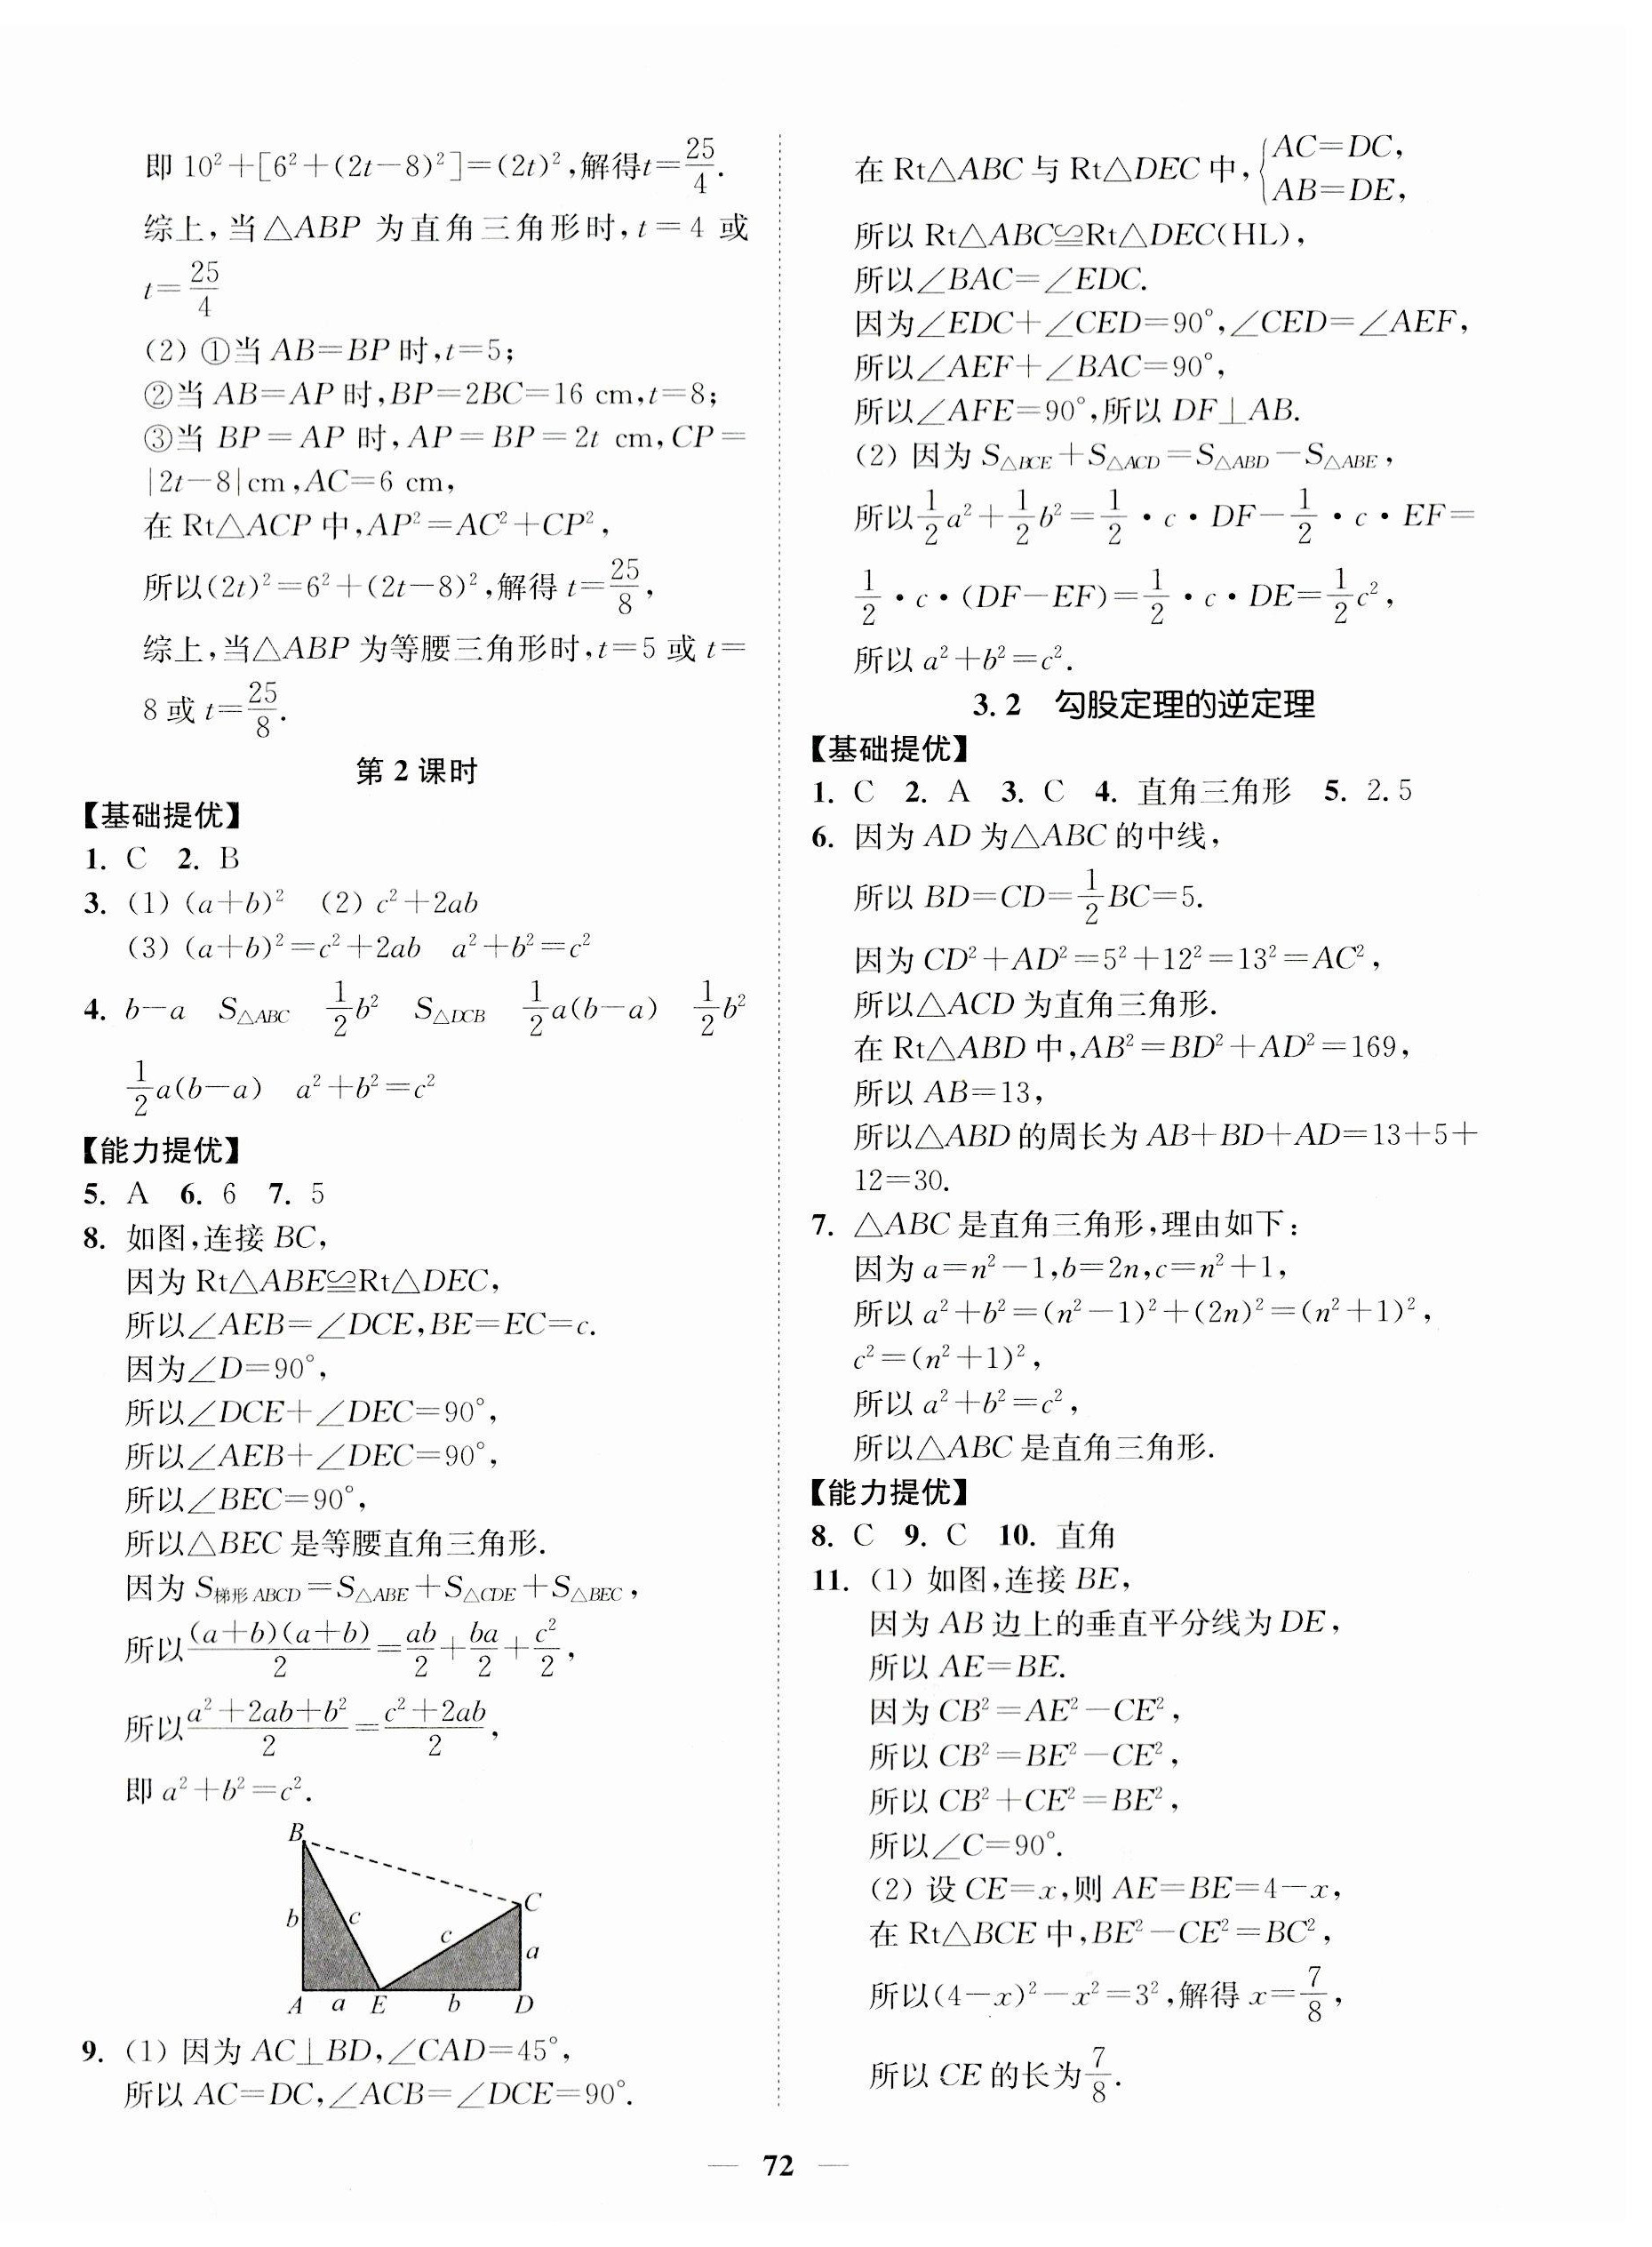 即 10²+[6²+(2t-8)²]=(2t)²,解得t=25/4.
综上,当△ABP 为直角三角形时,t=4 或
t=25/4
(2) ①当 AB=BP 时,t=5;
②当 AB=AP 时,BP=2BC=16 cm,t=8;
③当 BP=AP 时,AP=BP=2t cm,CP=
|2t-8|cm,AC=6 cm,
在 Rt△ACP 中,AP²=AC²+CP²,
所以(2t)²=6²+(2t-8)²,解得 t=25/8,
综上,当△ABP 为等腰三角形时,t=5 或 t=
8 或 t=25/8.
第 2 课时
【基础提优】
1. C 2. B
3. (1) (a+b)² (2) c²+2ab
(3) (a+b)²=c²+2ab a²+b²=c²
4. b-a S△ABC 1/2b² S△DCB 1/2a(b-a) 1/2b²
1/2a(b-a) a²+b²=c²
【能力提优】
5. A 6. 6 7. 5
8. 如图,连接 BC,
因为 Rt△ABE≌Rt△DEC,
所以∠AEB=∠DCE,BE=EC=c.
因为∠D=90°,
所以∠DCE+∠DEC=90°,
所以∠AEB+∠DEC=90°,
所以∠BEC=90°,
所以△BEC 是等腰直角三角形.
因为 S梯形ABCD=S△ABE+S△CDE+S△BEC,
所以(a+b)(a+b)/2=ab/2+ba/2+c²/2,
所以a²+2ab+b²/2=c²+2ab/2,
即 a²+b²=c².
B
C
b c c a
A a E b D
9. (1) 因为 AC⊥BD,∠CAD=45°,
所以 AC=DC,∠ACB=∠DCE=90°.
在 Rt△ABC 与 Rt△DEC 中,{AC=DC,
AB=DE,
所以 Rt△ABC≌Rt△DEC(HL),
所以∠BAC=∠EDC.
因为∠EDC+∠CED=90°,∠CED=∠AEF,
所以∠AEF+∠BAC=90°,
所以∠AFE=90°,所以 DF⊥AB.
(2) 因为 S△BCE+S△ACD=S△ABD-S△ABE,
所以1/2a²+1/2b²=1/2·c·DF-1/2·c·EF=
1/2·c·(DF-EF)=1/2·c·DE=1/2c²,
所以 a²+b²=c².
3.2 勾股定理的逆定理
【基础提优】
1. C 2. A 3. C 4. 直角三角形 5. 2.5
6. 因为 AD 为△ABC 的中线,
所以 BD=CD=1/2BC=5.
因为 CD²+AD²=5²+12²=13²=AC²,
所以△ACD 为直角三角形.
在 Rt△ABD 中,AB²=BD²+AD²=169,
所以 AB=13,
所以△ABD 的周长为 AB+BD+AD=13+5+
12=30.
7. △ABC 是直角三角形,理由如下:
因为 a=n²-1,b=2n,c=n²+1,
所以 a²+b²=(n²-1)²+(2n)²=(n²+1)²,
c²=(n²+1)²,
所以 a²+b²=c²,
所以△ABC 是直角三角形.
【能力提优】
8. C 9. C 10. 直角
11. (1) 如图,连接 BE,
因为 AB 边上的垂直平分线为 DE,
所以 AE=BE.
因为 CB²=AE²-CE²,
所以 CB²=BE²-CE²,
所以 CB²+CE²=BE²,
所以∠C=90°.
(2) 设 CE=x,则 AE=BE=4-x,
在 Rt△BCE 中,BE²-CE²=BC²,
所以(4-x)²-x²=3²,解得 x=7/8,
所以 CE 的长为7/8.
— 72 —